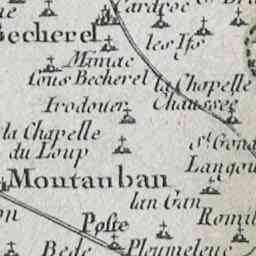 Cardroc
Becherel
les Ifs
Miniac
sous Becherel
la Chapelle
Chaussee
Irodouer
la Chapelle
du Loup
St. Gond
Langou
Montauban
lan Gan
Romil
Poste
Bede
Pleumeleuc